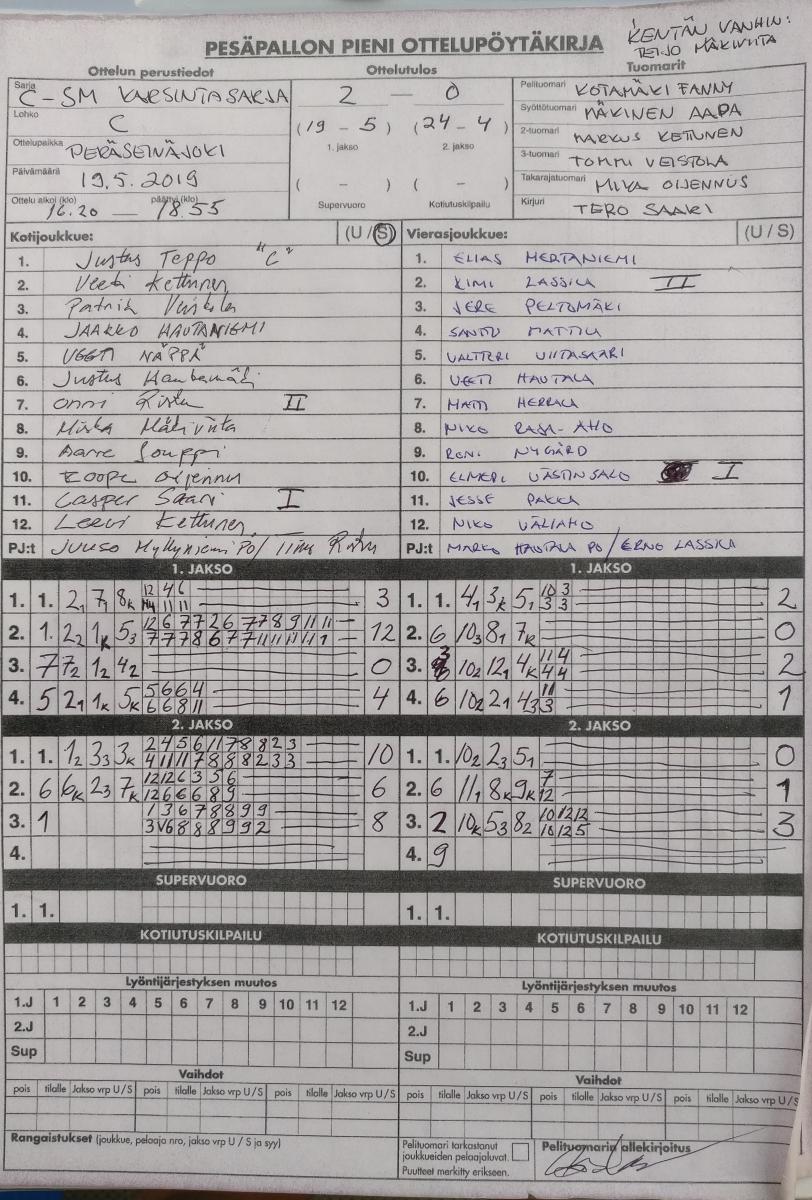 PESÄPALLON PIENI OTTELUPÖYTÄKIRJA
KENTÄN VANHIN:
TEIJO MÄKIVIITA
Ottelun perustiedot
Sarja C-SM KARSINTASARJA
Lohko C
Ottelupaikka PERÄSEINÄJOKI
Päivämäärä 19.5.2019
Ottelu alkoi (klo) 16.20 — päättyi (klo) 18.55
Ottelutulos
2 — 0
(19 - 5) (24 - 4)
1. jakso 2. jakso
( - ) ( - )
Supervuoro Kotiutuskilpailu
Tuomarit
Pelituomari KOTAMÄKI FANNY
Syöttötuomari MÄKINEN AAPA
2-tuomari MARKUS KETTUNEN
3-tuomari TOMMI VEISTOLA
Takarajatuomari MIKA OIJENNUS
Kirjuri TERO SAARI
Kotijoukkue: (U / S)
1. Justus Teppo "C"
2. Veeti Kettunen
3. Patrik
4. JAAKKO HAUTANIEMI
5. VEETI NÄPPÄ
6. Justus
7. Onni Ristu II
8. Miska Mäkiviita
9. Aarre Jouppi
10. Roope Oijennus
11. Casper Saari I
12. Leevi Kettunen
PJ:t Juuso Myllyniemi PÖ/
Vierasjoukkue: (U / S)
1. ELIAS HERTANIEMI
2. KIMI LASSILA II
3. JERE PELTOMÄKI
4. SANTTU MATTILA
5. VALTTERI VIITASAARI
6. VEETI HAUTALA
7. MATTI HERRALA
8. NIKO RAJA-AHO
9. RONI NYGÅRD
10. ELMERI VÄSTINSALO I
11. JESSE PAKKA
12. NIKO VÄLIAHO
PJ:t MARKO HAUTALA PÖ / ERNO LASSILA
1. JAKSO
1. 1. 2₁ 7₁ 8ₖ 12 4 6 3
11 11
2. 1. 2₂ 1ₖ 5₃ 12 6 7 7 2 6 7 7 8 9 11 11 12
7 7 7 8 6 7 7 11 11 11 11 1
3. 7 7₂ 1₂ 4₂ 0
4. 5 2₁ 1ₖ 5ₖ 5 6 6 4 4
6 6 8 11
1. JAKSO
1. 1. 4₁ 3ₖ 5₁ 10 3 2
3 3
2. 6 10₃ 8₁ 7ₖ 0
3. 10₂ 12₁ 4ₖ 11 4 2
4 4
4. 6 10₂ 2₁ 4₃ 11 1
3
2. JAKSO
1. 1. 1₂ 3₃ 3ₖ 2 4 5 6 11 7 8 8 2 3 10
4 11 11 7 8 8 8 2 3 3
2. 6 6ₖ 2₃ 7ₖ 12 12 6 3 5 6 6
12 6 6 6 8 9
3. 1 1 3 6 7 8 8 9 9 8
3 6 8 8 8 9 9 2
4.
2. JAKSO
1. 1. 10₂ 2₃ 5₁ 0
2. 6 11₁ 8ₖ 9ₖ 7 1
12
3. 2 10ₖ 5₃ 8₂ 10 12 12 3
10 12 5
4. 9
SUPERVUORO
1. 1.
SUPERVUORO
1. 1.
KOTIUTUSKILPAILU
KOTIUTUSKILPAILU
Lyöntijärjestyksen muutos
1.J 1 2 3 4 5 6 7 8 9 10 11 12
2.J
Sup
Lyöntijärjestyksen muutos
1.J 1 2 3 4 5 6 7 8 9 10 11 12
2.J
Sup
Vaihdot
pois tilalle Jakso vrp U / S pois tilalle Jakso vrp U / S pois tilalle Jakso vrp U / S
Vaihdot
pois tilalle Jakso vrp U / S pois tilalle Jakso vrp U / S pois tilalle Jakso vrp U / S
Rangaistukset (joukkue, pelaaja nro, jakso vrp U / S ja syy)
Pelituomari tarkastanut
joukkueiden pelaajaluvat.
Puutteet merkitty erikseen.
Pelituomarin allekirjoitus